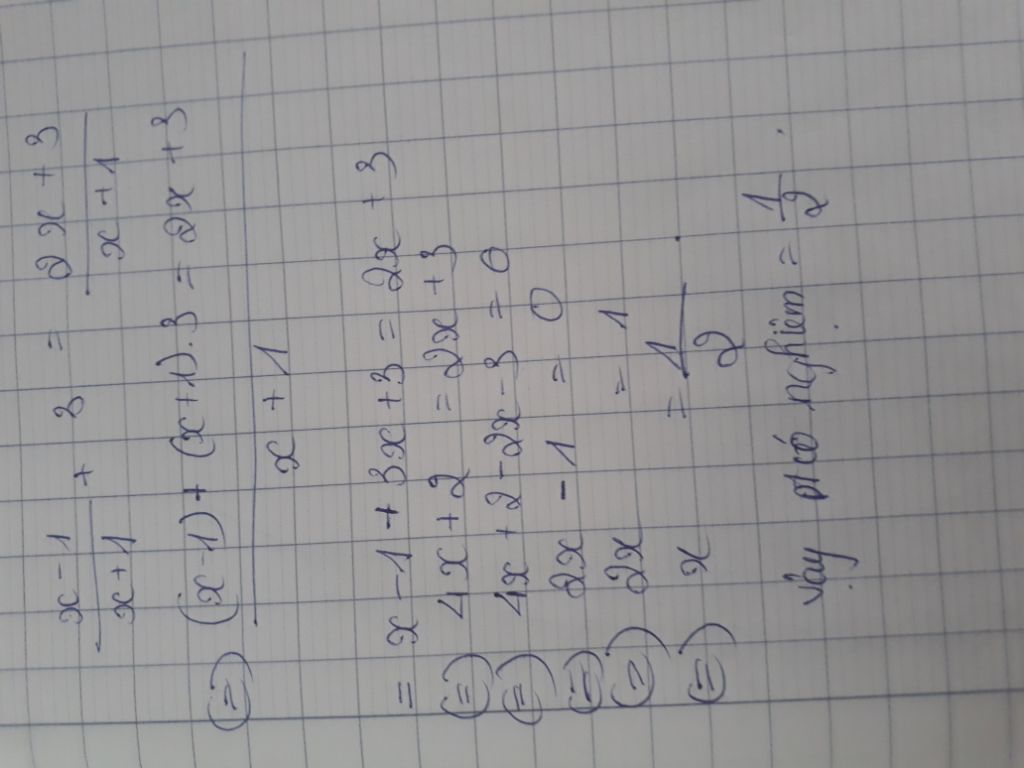 x-1/x+1 + 3 = 2x+3/x+1
(=) (x-1)+(x+1).3 = 2x+3
x+1
= x-1+3x+3 = 2x+3
(=) 4x+2 = 2x+3
(=) 4x+2-2x-3 = 0
(=) 2x -1 = 0
(=) 2x = 1
(=) x = 1/2 .
Vậy pt có nghiệm = 1/2 .